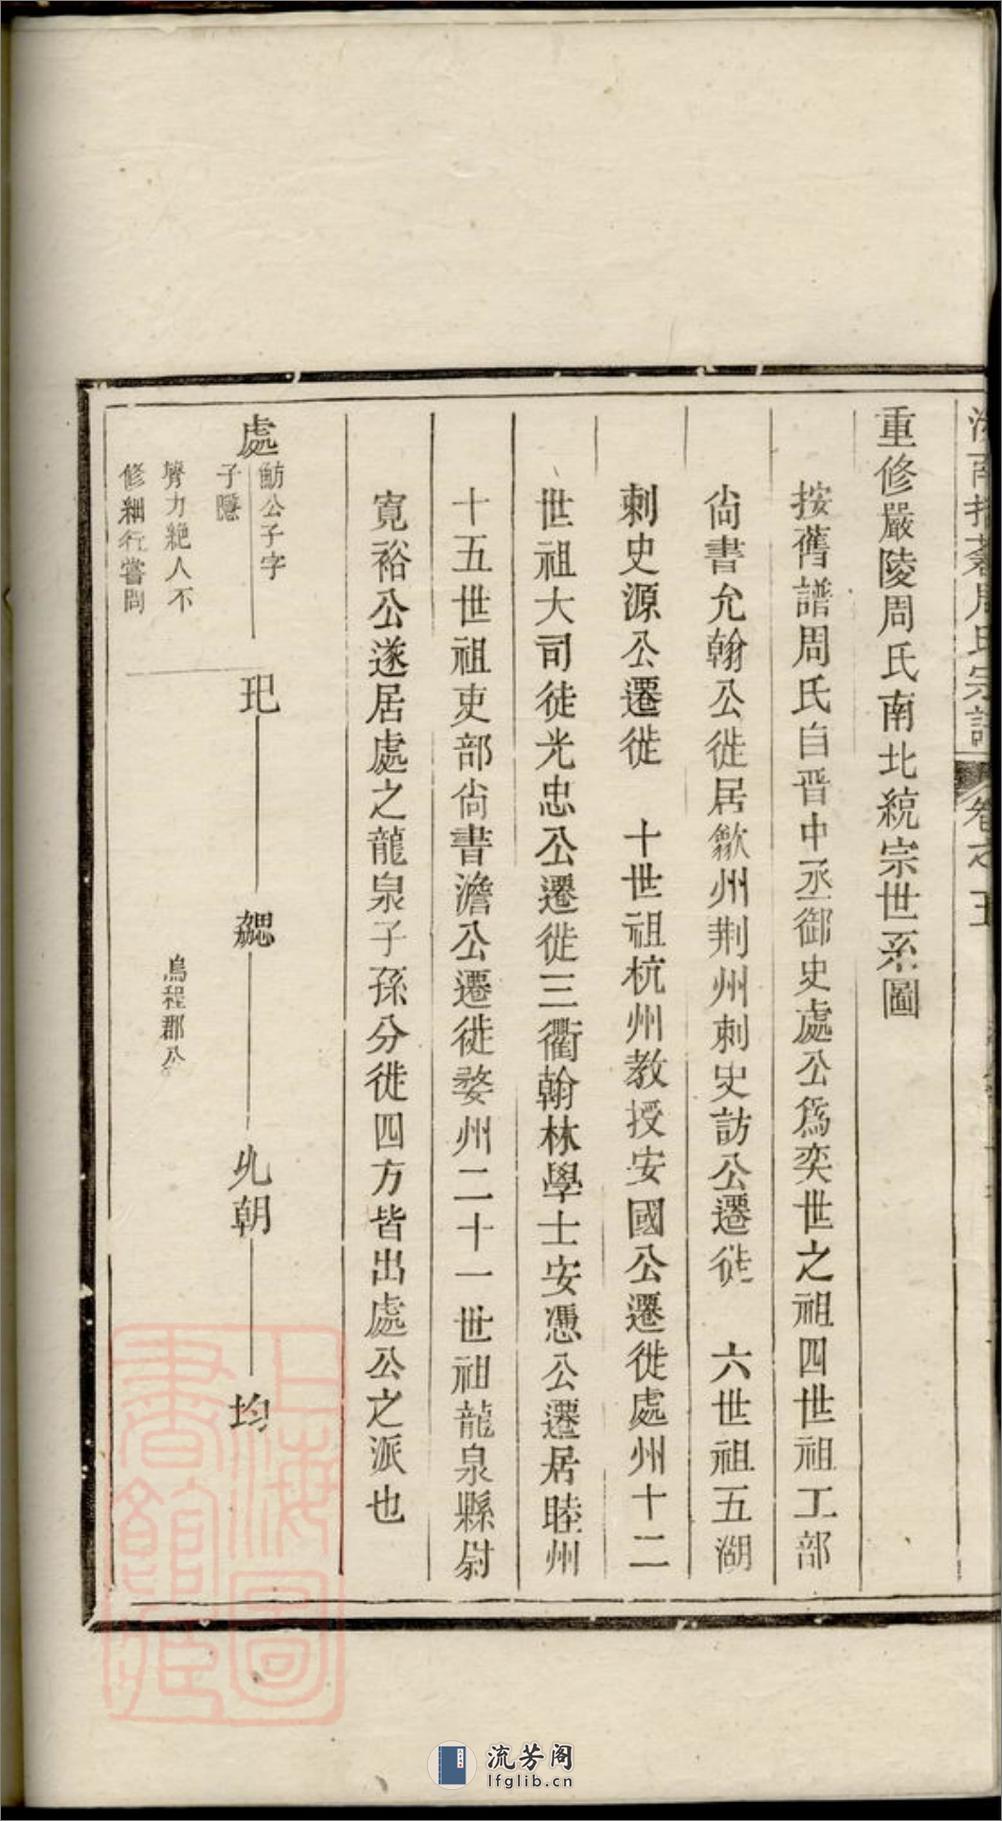 周氏宗譜
卷之五
重修嚴陵周氏南北統宗世系圖
按舊譜周氏自晋中丞御史處公爲奕世之祖四世祖工部
尙書允翰公徙居歙州荆州刺史訪公遷徙 六世祖五湖
刺史源公遷徙 十世祖杭州教授安國公遷徙處州十二
世祖大司徒光忠公遷徙三衢翰林學士安憑公遷居睦州
十五世祖吏部尙書澹公遷徙婺州二十一世祖龍泉縣尉
寬裕公遂居處之龍泉子孫分徙四方皆出處公之派也
處
魴公子字
子隱
膂力絶人不
修細行嘗問
玘
勰
烏程郡公
朝
均
上海圖
書館
流芳阁
lfglib.cn